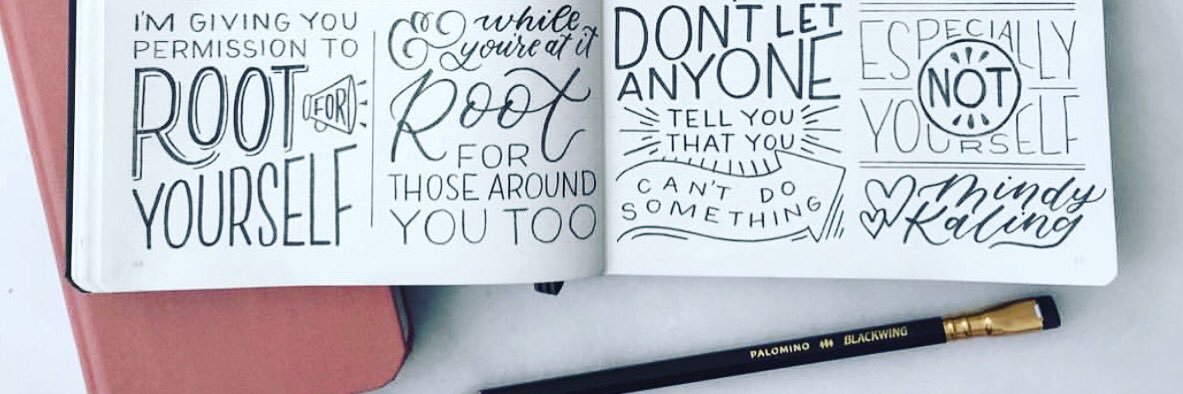 I'M GIVING YOU
PERMISSION TO
ROOT FOR
YOURSELF
& while
you're at it
Root
FOR
THOSE AROUND
YOU TOO
DON'T LET
ANYONE
TELL YOU
THAT YOU
CAN'T DO
SOMETHING
ESPECIALLY
NOT
YOURSELF
Mindy
Kaling
PALOMINO BLACKWING